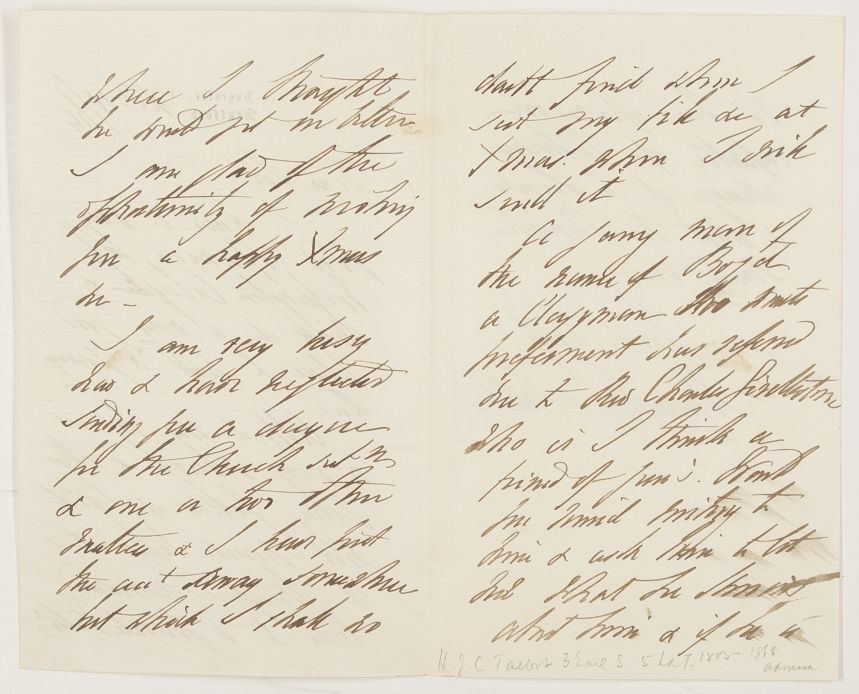 where I thought
he would get on better
I am glad of the
opportunity of wishing
you a happy Xmas
I am very busy
now & have neglected
sending you a cheque
for the Church
& one or two other
matters & I have put
the acct away somewhere
but which I shall no
doubt find when I
set my tin &c at
Xmas. when I will
send it
A young man of
the name of Boyd
a Clergyman who wants
preferment has referred
me to Rev Charles Girdlestone
who is I think a
friend of yours. Would
you mind writing to
him & ask him to let
me what he knows
about him & if he is
H. J. C Talbot 3 Earl S 5 Ld T. 1803-1868